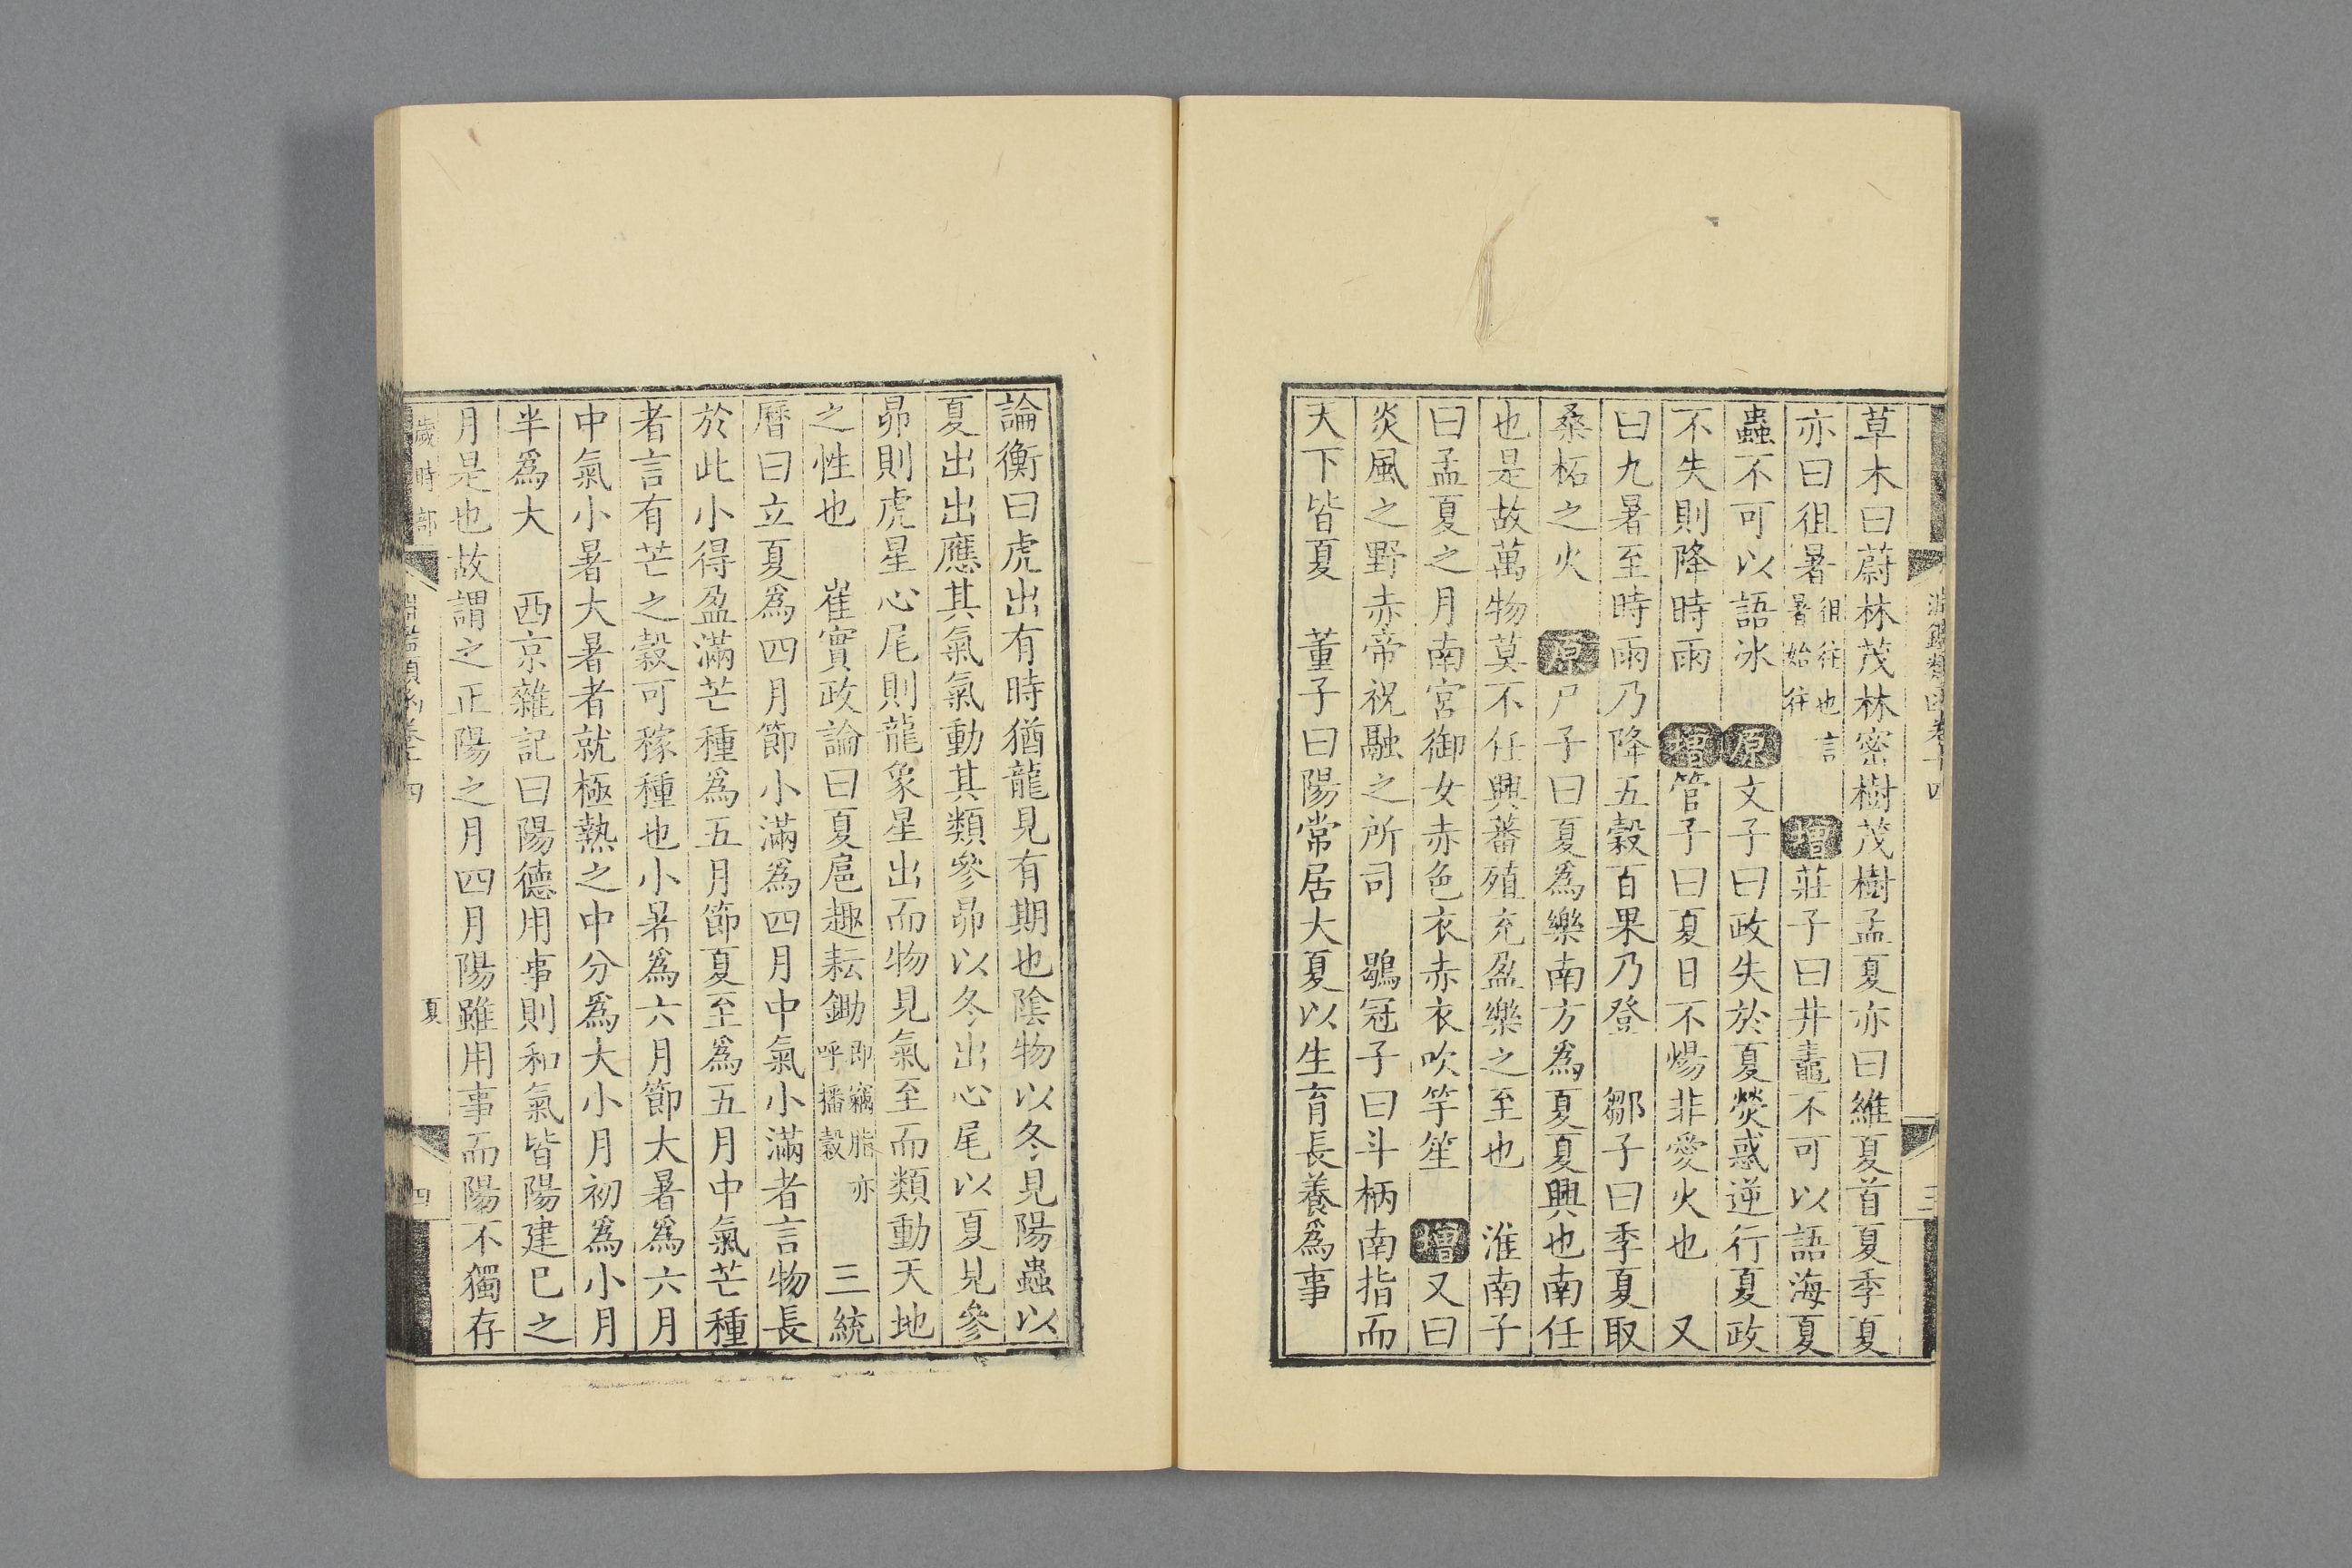 草木曰蔚林茂林密樹茂樹孟夏亦曰維夏首夏季夏
亦曰徂暑徂往也言暑始往 增莊子曰井鼃不可以語海夏
蟲不可以語冰 原文子曰政失於夏熒惑逆行夏政
不失則降時雨 增管子曰夏日不煬非愛火也 又
曰九暑至時雨乃降五穀百果乃登 鄒子曰季夏取
桑柘之火 原尸子曰夏為樂南方為夏夏興也南任
也是故萬物莫不任興蕃殖充盈樂之至也 淮南子
曰孟夏之月南宮御女赤色衣赤衣吹竽笙 增又曰
炎風之野赤帝祝融之所司 鶡冠子曰斗柄南指而
天下皆夏 董子曰陽常居大夏以生育長養爲事
論衡曰虎出有時猶龍見有期也陰物以冬見陽蟲以
夏出出應其氣氣動其類參昴以冬出心尾以夏見參
昴則虎星心尾則龍象星出而物見氣至而類動天地
之性也 崔實政論曰夏扈趣耘鋤即竊脂亦呼播穀 三統
曆曰立夏爲四月節小滿爲四月中氣小滿者言物長
於此小得盈滿芒種爲五月節夏至爲五月中氣芒種
者言有芒之穀可稼種也小暑爲六月節大暑爲六月
中氣小暑大暑者就極熱之中分爲大小月初爲小月
半爲大 西京雜記曰陽德用事則和氣皆陽建巳之
月是也故謂之正陽之月四月陽雖用事而陽不獨存
歲時部 淵鑑類函卷十四 夏 四